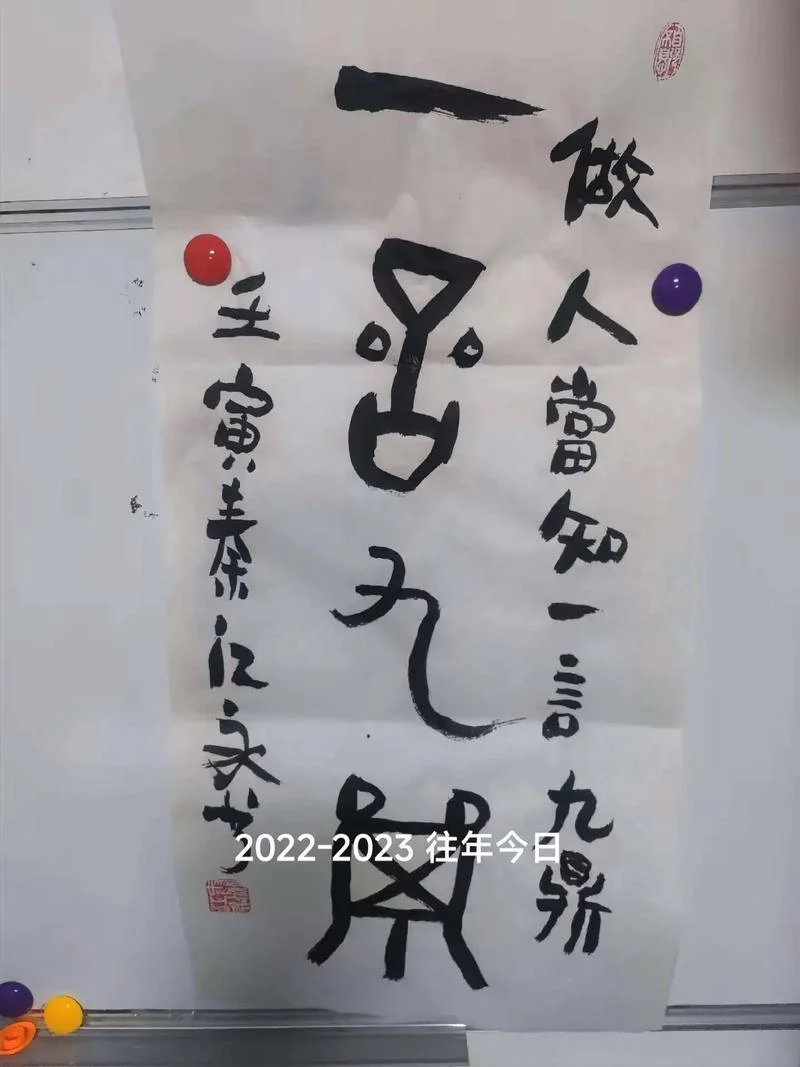 做人當知一言九鼎
一言九鼎
壬寅秦江永书
2022-2023 往年今日